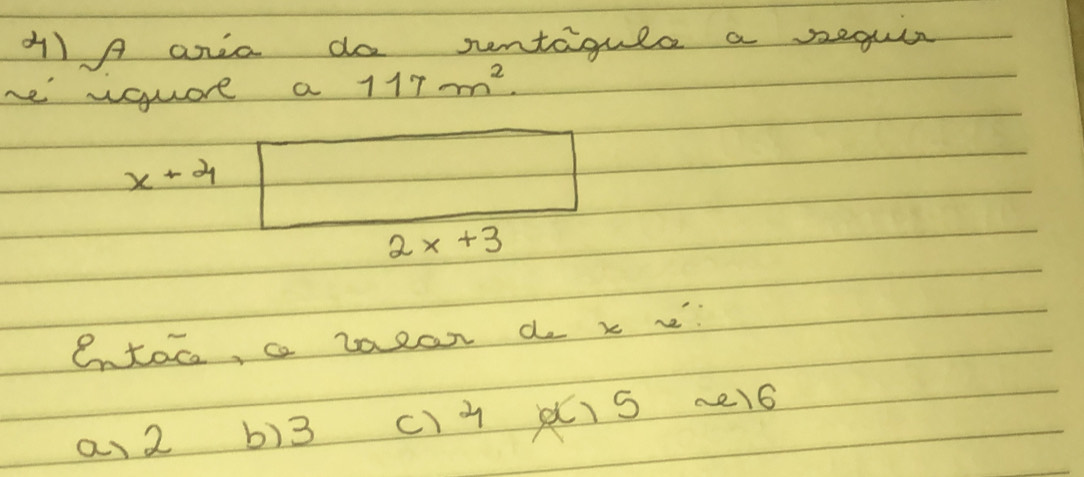 4) A aréa do rentãgulo a seguir
é iguol a 117 m².
x + 4
2x + 3
Então, o valor de x é:
a) 2 b) 3 c) 4 d) 5 e) 6